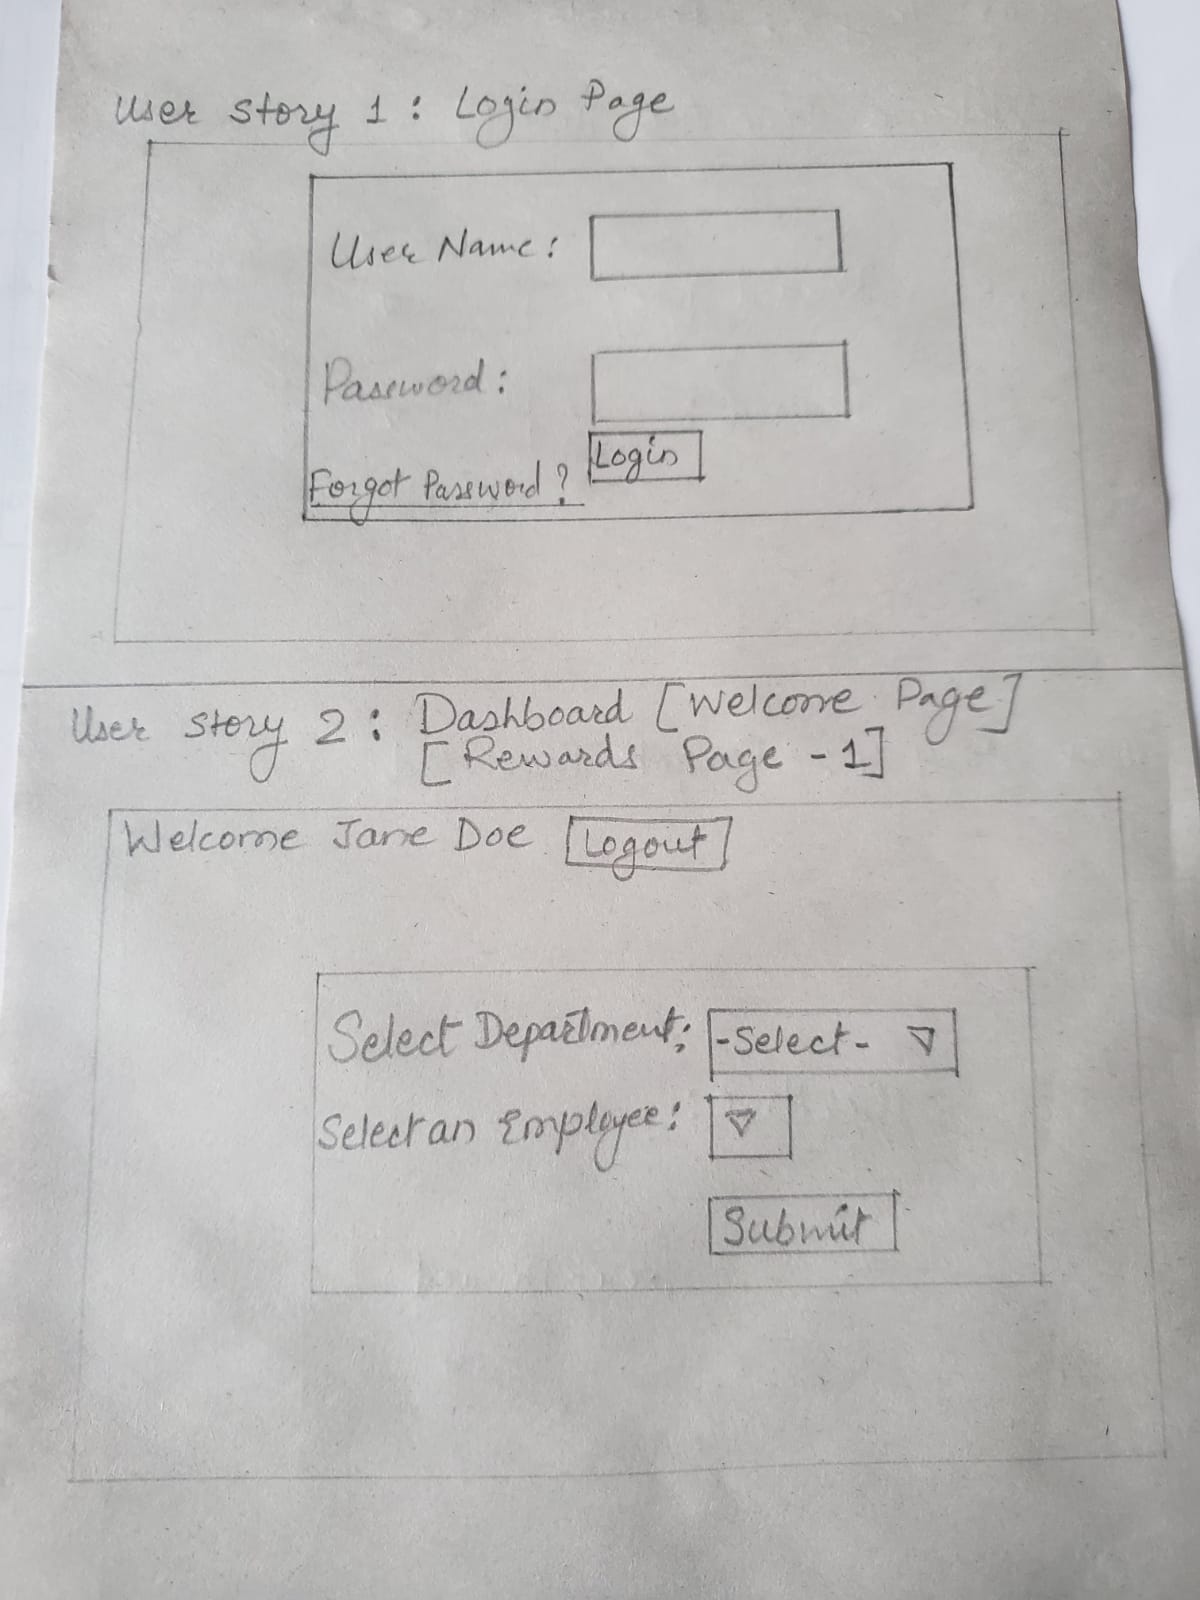 User Story 1 : Login Page
User Name :
Password :
Login
Forgot Password ?
User Story 2 : Dashboard [Welcome Page]
[Rewards Page - 1]
Welcome Jane Doe Logout
Select Department: -Select-
Select an Employee:
Submit